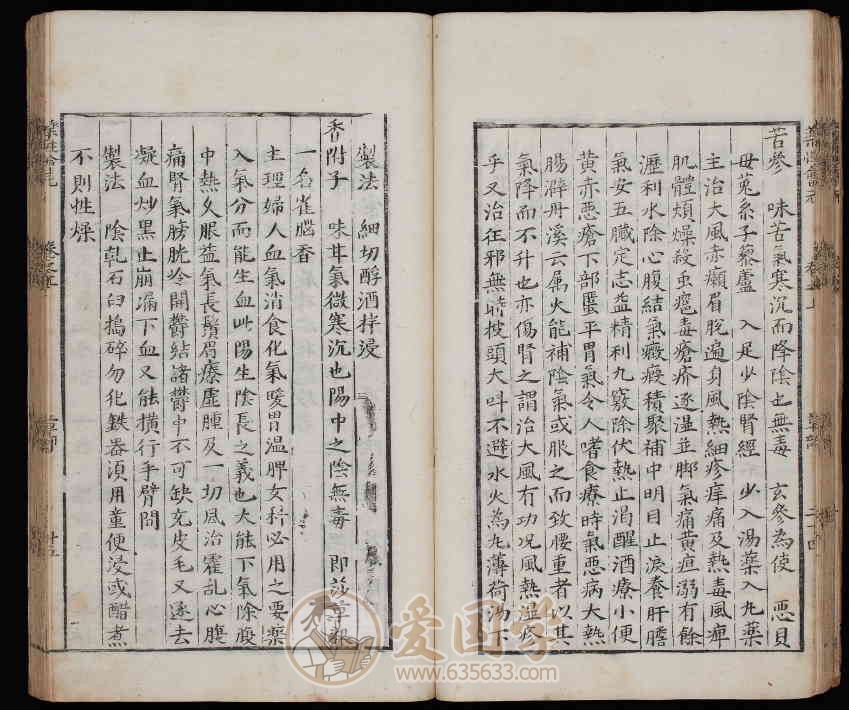 苦參　味苦氣寒沉而降陰也無毒　玄參為使　惡貝
母菟系子藜蘆　入足少陰腎經　少入湯藥入丸藥
主治大風赤癩眉脫遍身風熱細疹痒痛及熱毒風痺
肌體煩燥殺虫䘌毒瘡疥逐濕並脚氣痛黃疸溺有餘
瀝利水除心腹結氣癥瘕積聚補中明目止淚養肝膽
氣安五臟定志益精利九竅除伏熱止渴醒酒療小便
黃赤惡瘡下部䘌平胃氣令人嗜食療時氣惡病大熱
腸澼丹溪云属火能補陰氣或服之而致腰重者以其
氣降而不升也亦傷腎之謂治大風有功况風熱濕疹
乎又治狂邪無時披頭大呌不避水火為丸薄荷湯下
製法　細切醇酒拌浸
香附子　味甘氣微寒沉也陽中之陰無毒　即莎草根
一名雀腦香
主理婦人血氣消食化氣煖胃温脾女科必用之要藥
入氣分而能生血此陽生陰長之義也大能下氣除腹
中熱久服益氣長鬚眉療虛腫及一切風治霍乱心腹
痛腎氣膀胱冷開欝結諸欝中不可缺充皮毛又逐去
凝血炒黑止崩漏下血又能横行手臂間
製法　陰乾石臼搗碎勿化鉄器須用童便浸或醋煮
不則性燥
爱国学
www.635633.com